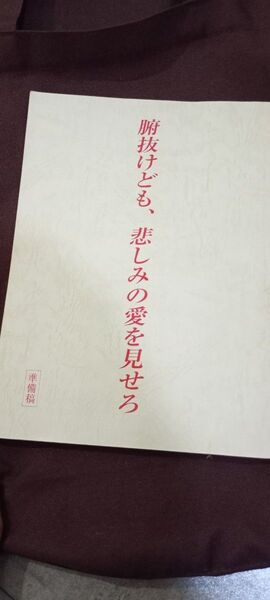 腑抜けども、悲しみの愛を見せろ
準備稿